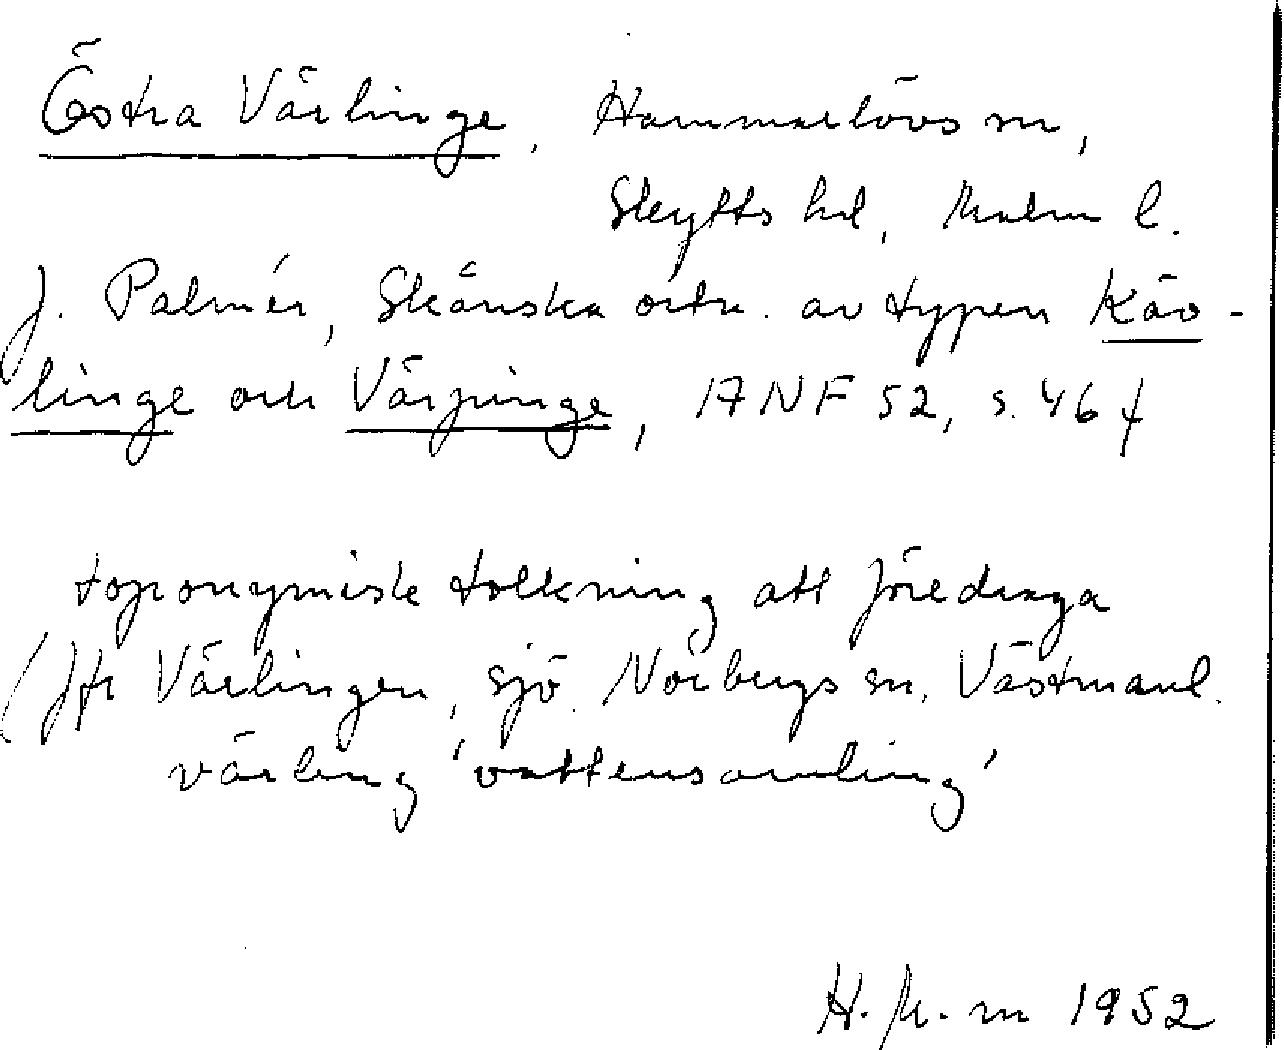 Östra Värlinge, Hammarlövs sn,
Skytts hd, Malm l.
J. Palmér, Skånska ortn. av typen Käv-
linge och Värpinge, ANF 52, s. 46 f
toponymisk tolkning att föredraga
(Jfr Värlingen, sjö Norbergs sn, Västmanl.
värling 'vattensamling'
H. M-m 1952